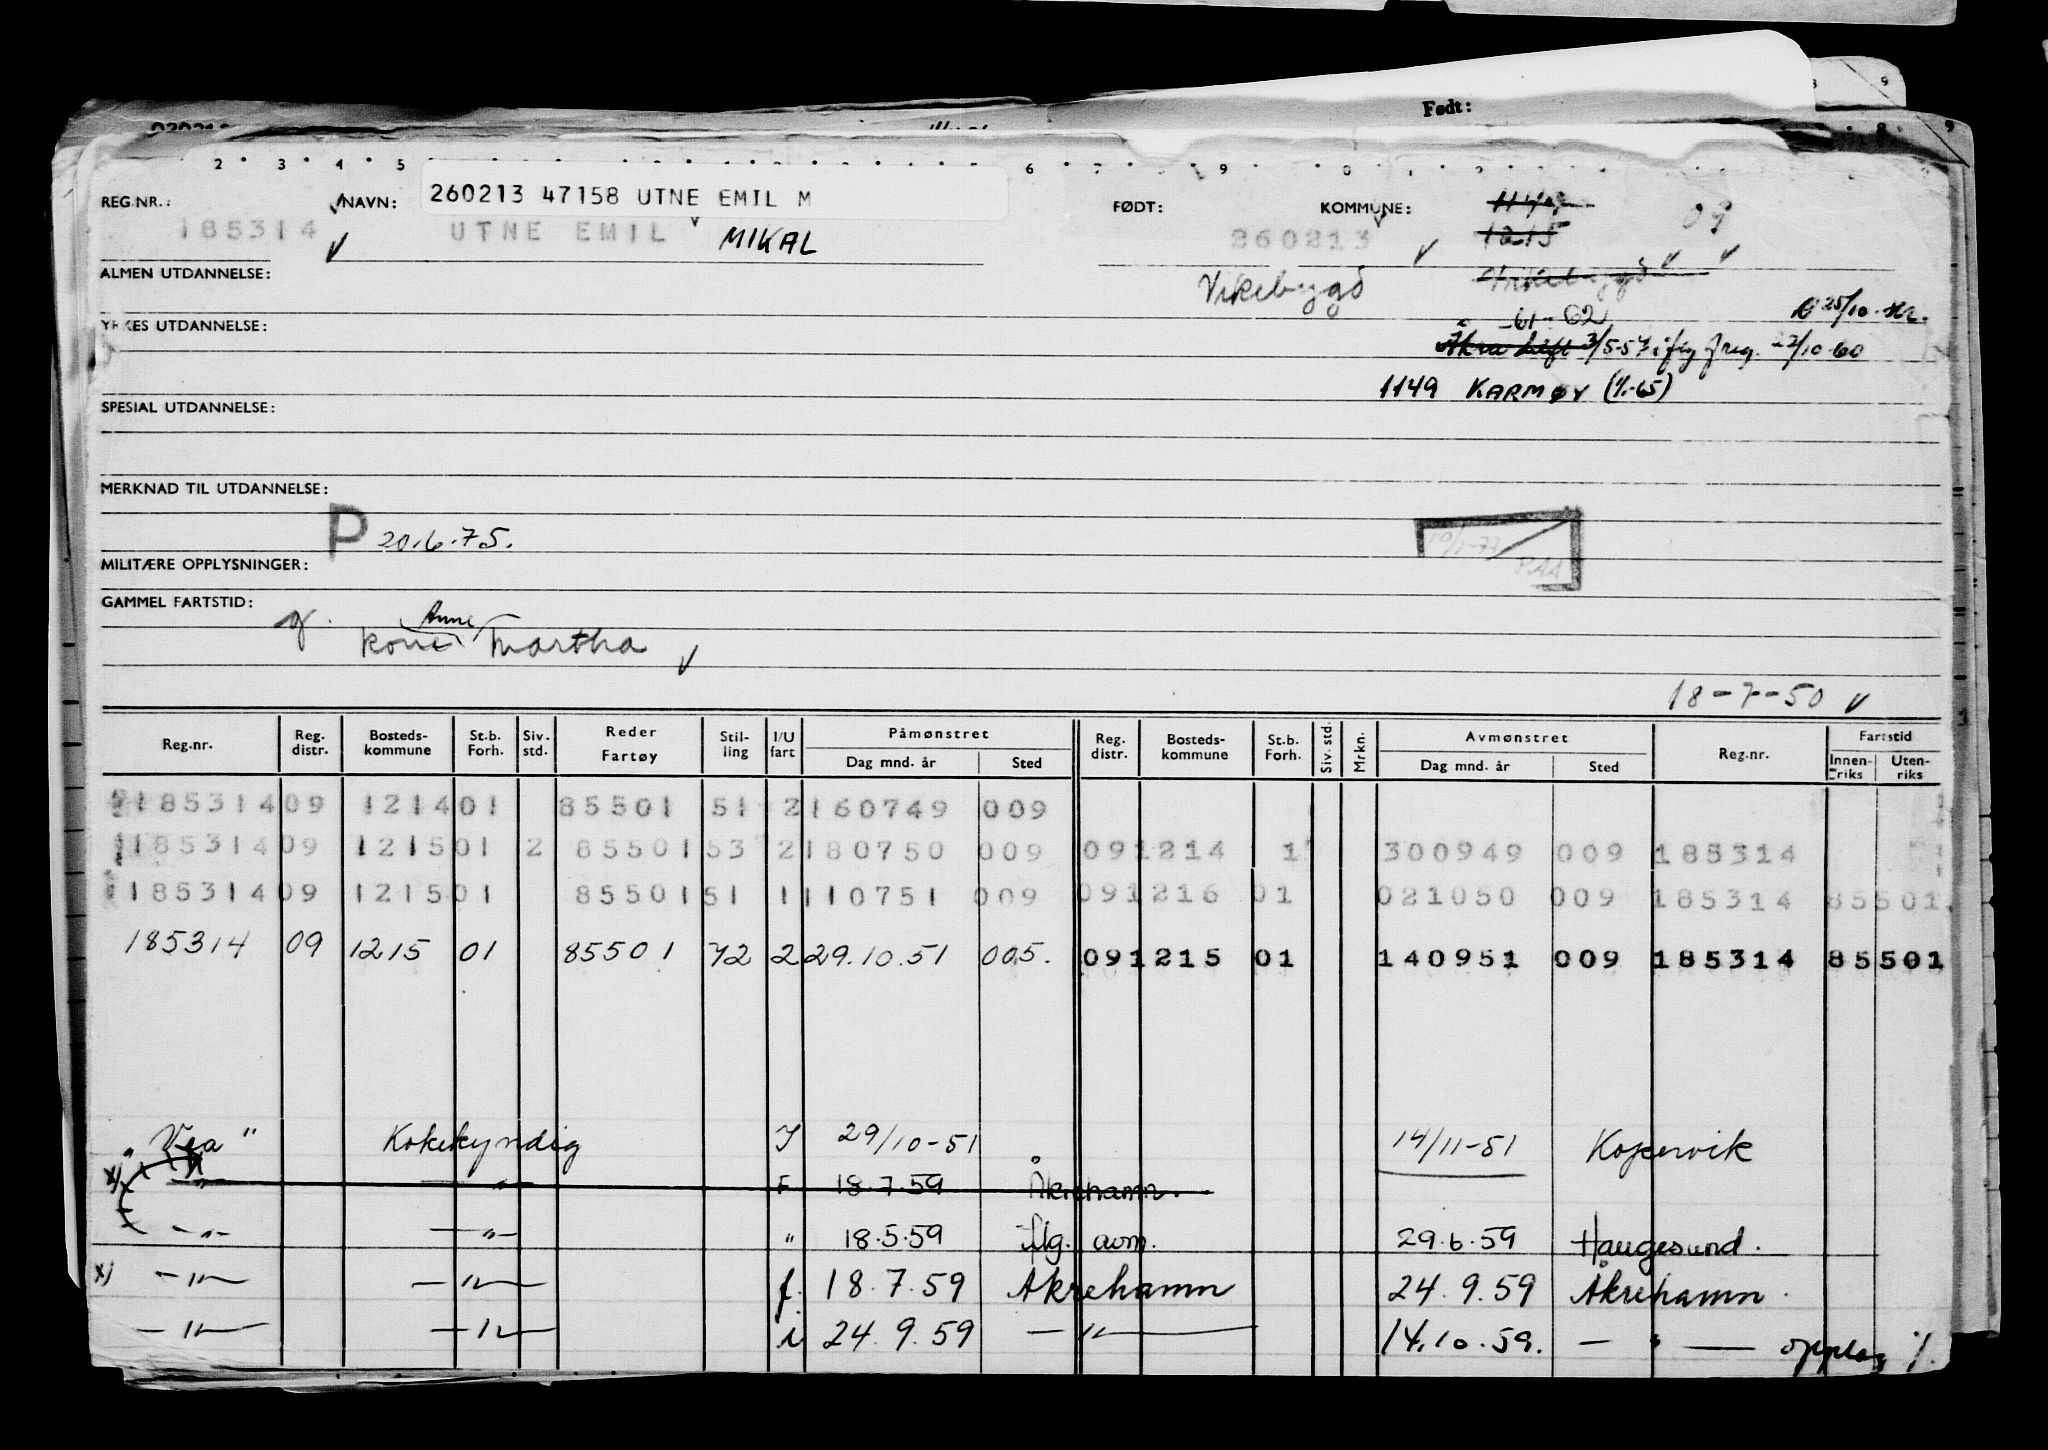 Født:
2 3 4 5 6 7 8 9
REG.NR.: NAVN: 260213 47158 UTNE EMIL M FØDT: KOMMUNE:
185314 UTNE EMIL MIKAL 260213 1215 09
ALMEN UTDANNELSE: Vikebygd Vikebygd
61-62
YRKES UTDANNELSE: Åkra 3/5-57 ifg freg. 22/10-60
1149 KARMØY (1/1-65)
SPESIAL UTDANNELSE:
MERKNAD TIL UTDANNELSE:
P 20.6.75.
MILITÆRE OPPLYSNINGER:
GAMMEL FARTSTID:
g. kone Anne Martha
18-7-50
Reg.nr. Reg. distr. Bosteds-kommune St.b. Forh. Siv. std. Reder Fartøy Stil-ling I/U fart Påmønstret Dag mnd. år Sted Reg. distr. Bosteds-kommune St.b. Forh. Siv. std. Mrkn. Avmønstret Dag mnd. år Sted Reg.nr. Fartstid Innen-riks Uten-riks
185314 09 1214 01 85501 51 2 160749 009
185314 09 1215 01 2 85501 53 2 180750 009 09 1214 1 300949 009 185314
185314 09 1215 01 85501 51 1 110751 009 09 1216 01 021050 009 185314 85501
185314 09 1215 01 85501 72 2 29.10.51 005. 09 1215 01 140951 009 185314 85501
"Vea" Kokekyndig I 29/10-51 14/11-51 Kopervik
x) -"- -"- F 18.7.59 Åkrehamn.
-"- -"- " 18.5.59 ifg. avm. 29.6.59 Haugesund.
x) -"- -"- f. 18.7.59 Åkrehamn 24.9.59 Åkrehamn.
-"- -"- i 24.9.59 -"- 14.10.59. -"- opplag